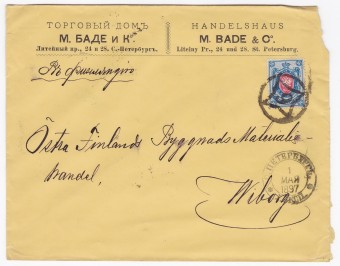 ТОРГОВЫЙ ДОМЪ
М. БАДЕ И Кº.
Литейный пр., 24 и 28. С.-Петербургъ.
HANDELSHAUS
M. BADE & Cº.
Liteiny Pr., 24 und 28. St. Petersburg.
Въ Финляндію
Östra Finlands Byggnads Materialie-
handel,
Wiborg
ПЕТЕРБУРГЪ
1
МАЯ
1897